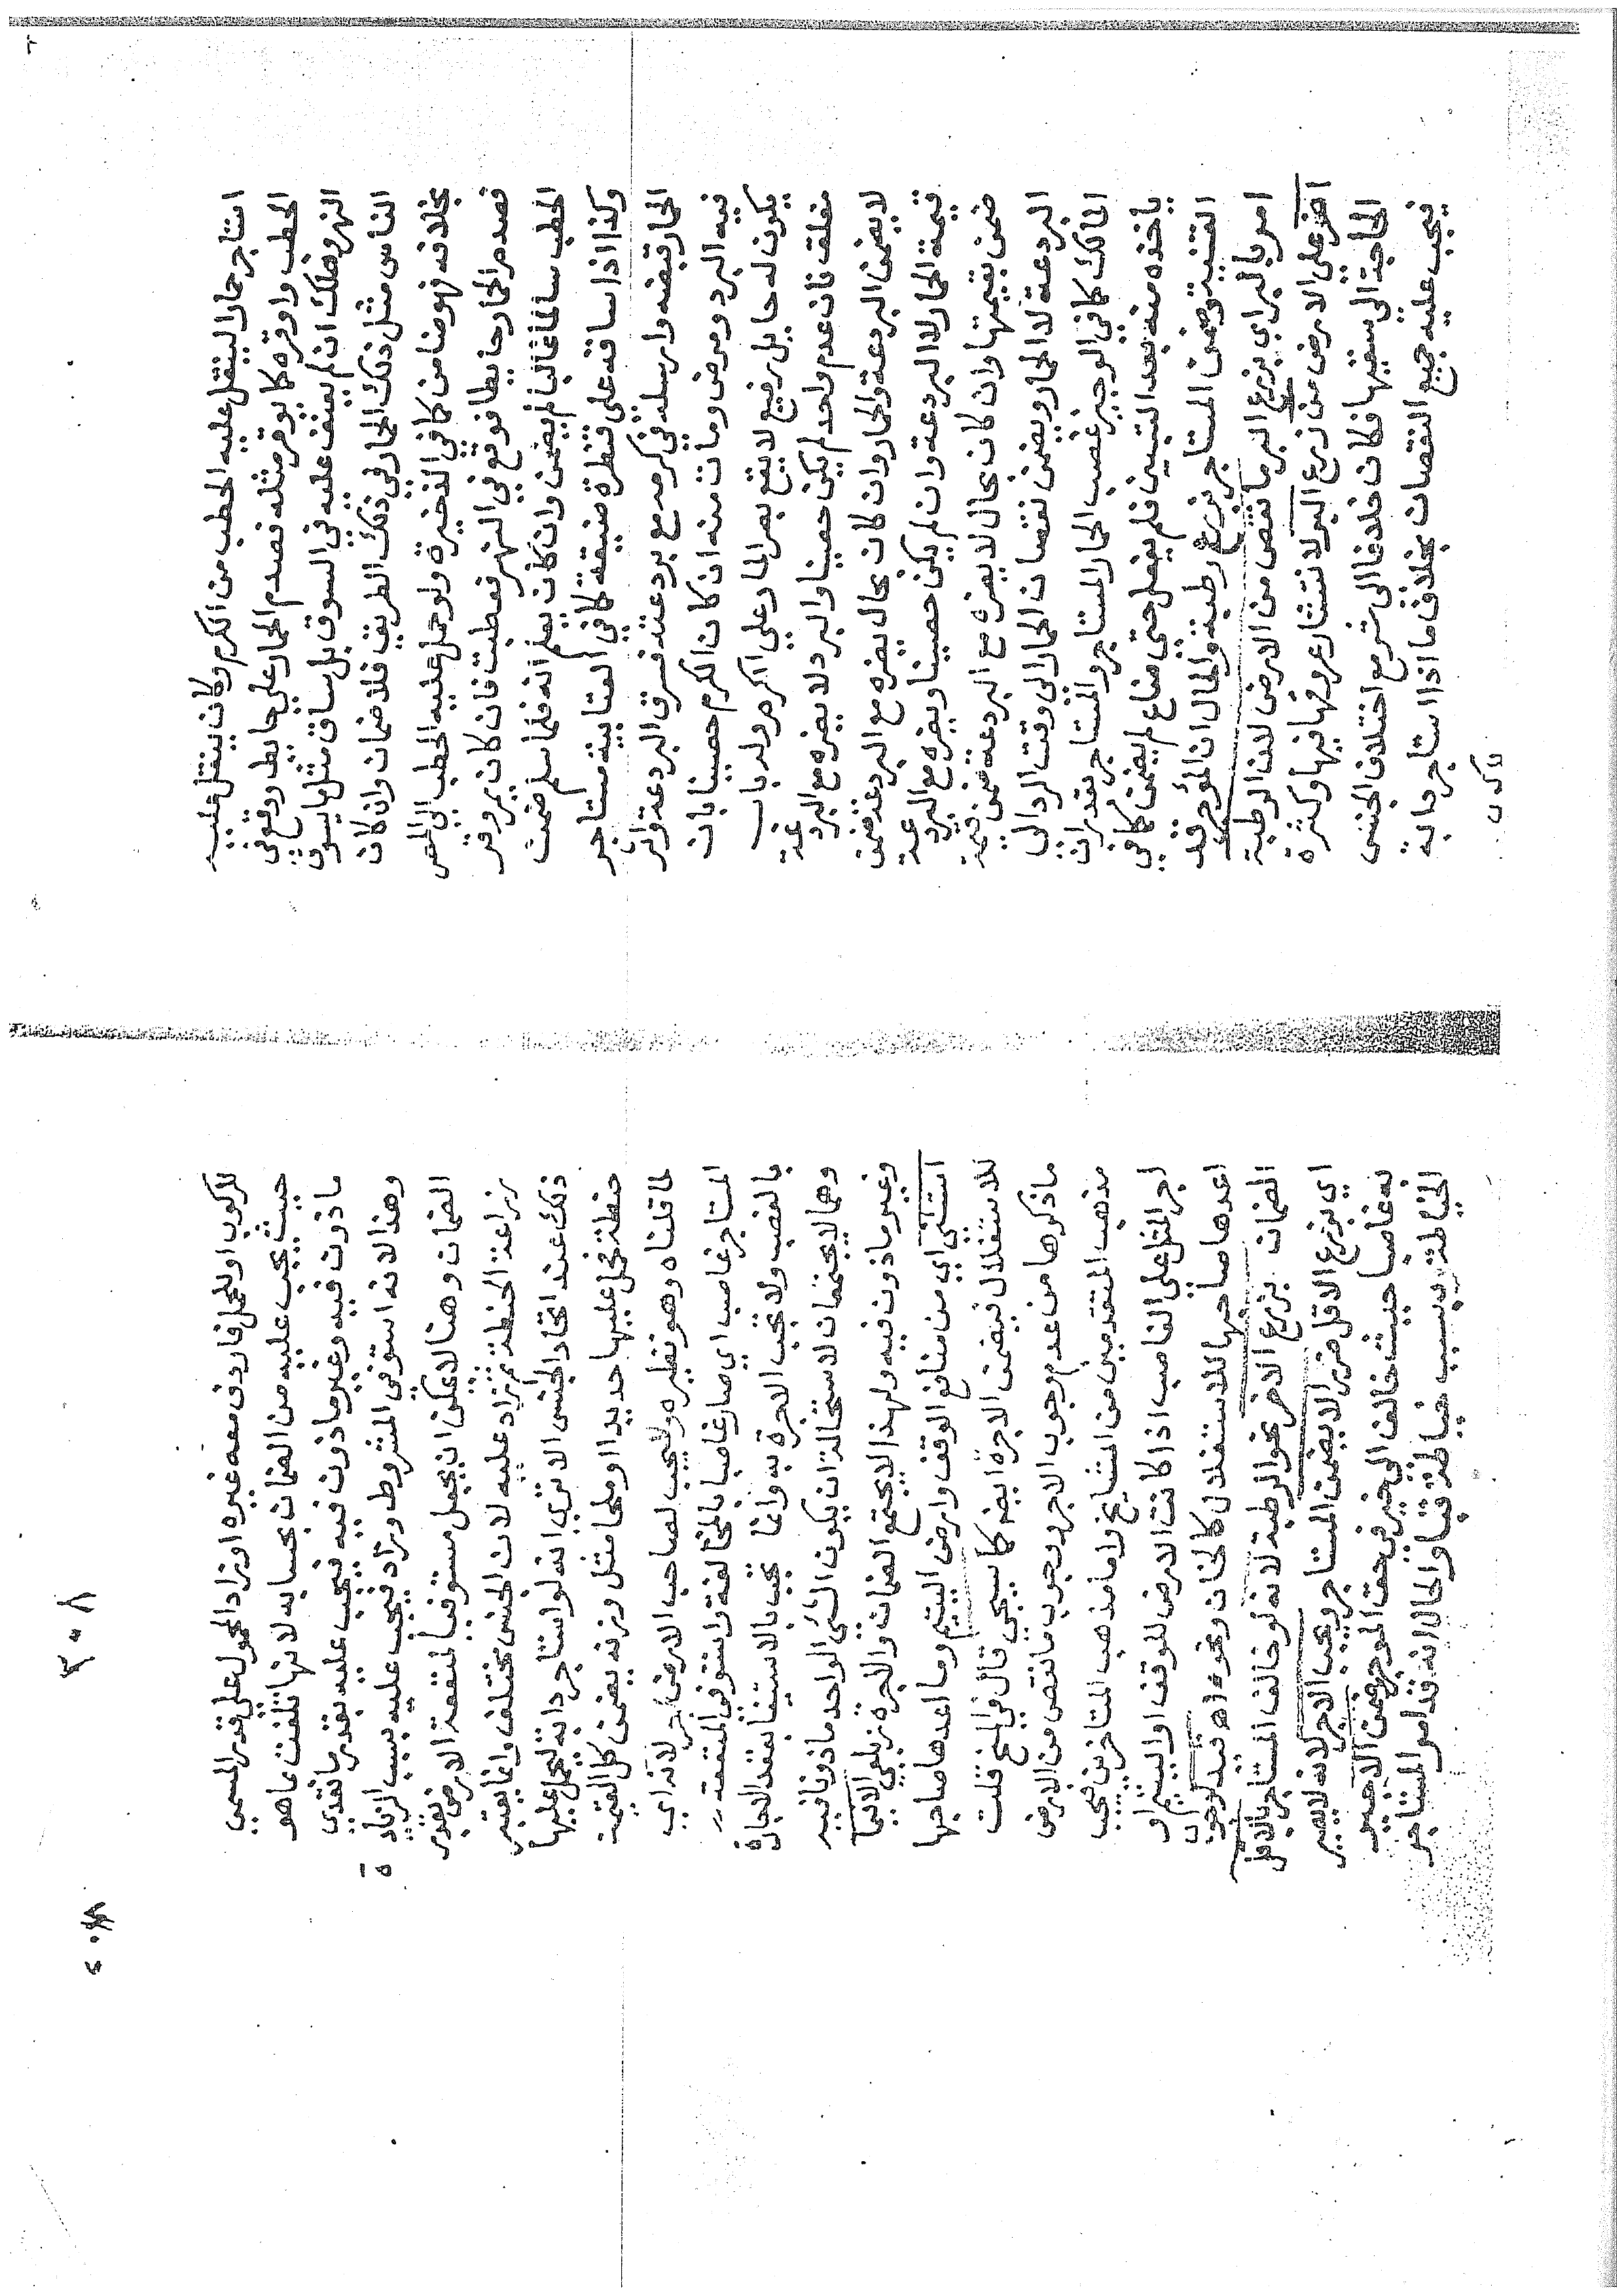 استاجر حمارا لينقل عليه الحطب من الكرم وكان ينقل عليه
الحطب واوقره كما يوقر مثله فصدم الحمار على حايط ووقع في
النهر وهلك ان لم يعنف عليه في السوق بل ساق مثل ما يسوق
الناس مثل ذلك الحمار في ذلك الطريق فلا ضمان وان كان
بخلافه فهو ضامن كما في الذخيرة ولو حمل عليه الحطب الى المصر
فصدم الحمار حايطا فوقع في النهر فعطبت فان كان يروقر
الحطب سالما غالبا لم يضمن وان كان يعلم انه قلما سلم ضمنت
وكذا اذا ساقه على قنطرة ضيقة كما في العتابية مستاجر
الحمار قبضه وارسله في كرمه مع بردعته فسرق البردعة واثر
فيه البرد ومرض ومات منه ان كان الكرم حصينا بان
يكون له حايل رفيع لا يقع بصر المار على الكرم وله باب
مغلق فان عدم واحد لم يكن حصينا والبرد لا يضره مع البردعة
لا يضمن البردعة والحمار وان كان بحال يضره مع البردعة ضمن
قيمة الحمار لا البردعة وان لم يكن حصينا ويضره مع البردعة
ضمن بقيمتها وان كان بحال لا يضره مع البردعة ضمن قيمة
البردعة لا الحمار ويضمن نقصان الحمار الى وقت الرد الى
المالك كما في الوجيز غصب الحمار المستاجر والمستاجر يقدر ان
ياخذه منه بعد التبيين فلم يفعل حتى ضاع لم يضمن كما في
القنية وضمن المستاجر بزرع رطبة والحال ان المؤجر قد
امر بالبر اي بزرع البر ما نقص من الارض لان الرطبة
اضر على الارض من زرع البر لانتشار عروقها فيها وكثرة
الحاجة الى سقيها فكان خلافا الى شر مع اختلاف الجنس
فيجب عليه جميع النقصان بخلاف ما اذا استاجر دابة
للركوب او للحمل فاردف معه غيره او زاد المحمول على قدر المسمى
حيث يجب عليه من الضمان بحسابه لانها تلفت بما هو
ماذون فيه وغير ماذون فيه فيجب عليه بقدر ما تعدى
وهذا لانه استوفى المشروط وزاد فيجب عليه بسبب الزيادة
الضمان وهنا لا يمكن ان يجعل مستوفيا لمنفعة الارض بقدر
زراعة الحنطة ثم زاد عليه لان الجنس مختلف وانما يعتبر
ذلك عند اتحاد الجنس الا ترى انه لو استاجر دابة ليحمل عليها
حنطة فحمل عليها حديدا او ملحا مثل وزنه يضمن كل القيمة
لما قلناه وهو نظيره ولا يجب لصاحب الارض اجر لانه اي
المستاجر غاصب اي صار غاصبا بالمخالفة واستوفى المنفعة
بالغصب ولا تجب الاجرة به وانما تجب بالاستيفا بعقد الاجارة
وهما لا يجتمعان لاستحالة ان يكون الشي الواحد ماذونا فيه
وغير ماذون فيه ولهذا لا يجتمع الضمان والاجرة زيلعي الا فيما
استثنى اي من منافع الوقف وارض اليتيم وما اعدها صاحبها
للاستغلال فيضمن الاجرة ايضا كما سيجي قال في المنح قلت
ما ذكروها من عدم وجوب الاجر ووجوب ما نقص من الارض
مذهب المتقدمين من المشايخ واما مذهب المتاخرين فيجب
اجر المثل على الغاصب اذا كانت الارض للوقف او ليتيم او
اعدها صاحبها للاستغلال كالخان ونحوه اه قيد لوجوب
الضمان بزرع الاضر نحو الرطبة لانه لو خالف المستاجر بالاقل
اي بزرع الاقل ضررا لا يضمن المستاجر ويجب الاجر لانه لا يصير
به غاصبا حيث خالف الى خير في حق الموجر وضمن الاجير
الخياط بسبب خياطة قباو الحال انه قد امر المستاجر